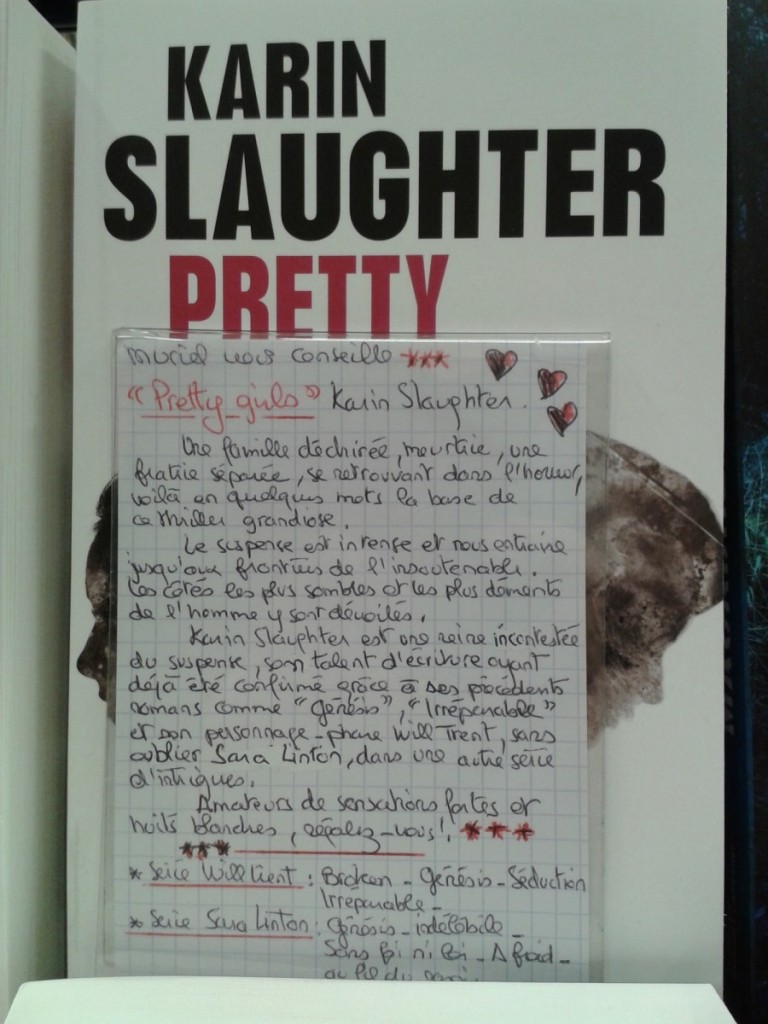 KARIN
SLAUGHTER
PRETTY
Muriel vous conseille ***
"Pretty girls" Karin Slaughter.
Une famille déchirée, meurtrie, une
fratrie séparée, se retrouvant dans l'horreur,
voilà en quelques mots la base de
ce thriller grandiose.
Le suspense est intense et nous entraine
jusqu'aux frontières de l'insoutenable.
Les côtés les plus sombles et les plus déments
de l'homme y sont dévoilés.
Karin Slaughter est une reine incontestée
du suspense, son talent d'écriture ayant
déjà été confirmé grâce à ses précédents
romans comme "Génésis", "Irréparable"
et son personnage-phare Will Trent, sans
oublier Sara Linton, dans une autre série
d'intrigues.
Amateurs de sensations fortes et
nuits blanches, régalez-vous! ***
***
* Série Will Trent : Broken - Génésis - Séduction
Irréparable -
* Série Sara Linton : Génésis - indélébile -
Sans foi ni loi - Afraid -
au fil du